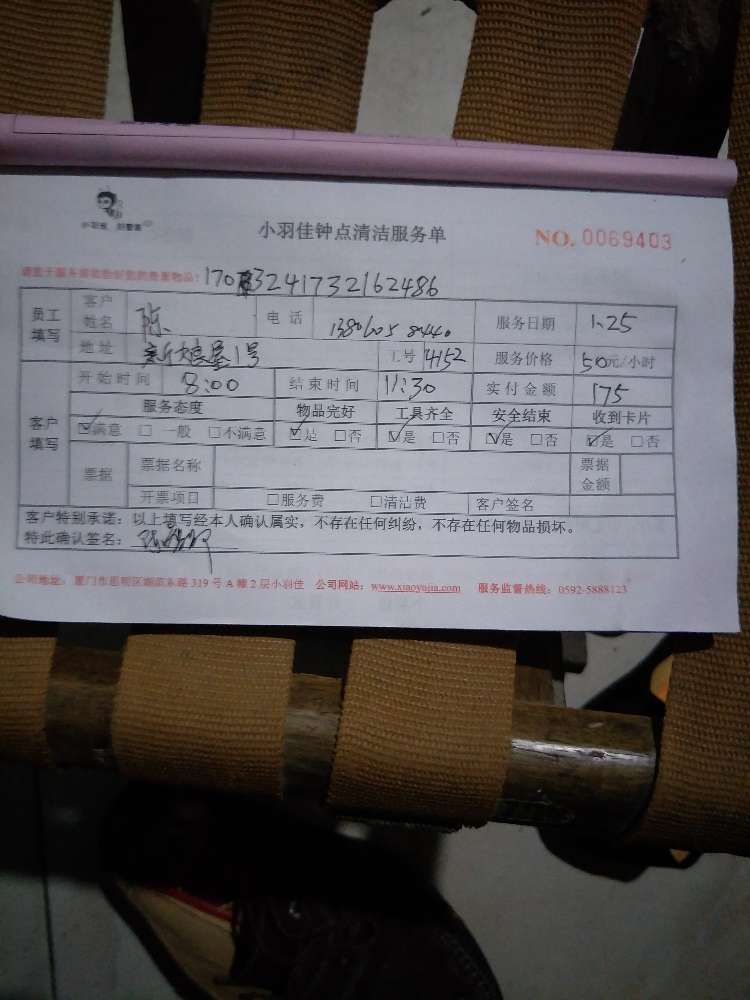 小羽佳钟点清洁服务单
NO. 0069403
请您于服务前收拾好您的贵重物品: 170 3241732162486
员工填写 客户姓名 陈 电话 服务日期 1.25
地址 1号 工号 4152 服务价格 50元/小时
开始时间 8:00 结束时间 11:30 实付金额 175
客户填写 服务态度 物品完好 工具齐全 安全结束 收到卡片
☑满意 □一般 □不满意 ☑是 □否 ☑是 □否 ☑是 □否 ☑是 □否
票据 票据名称 票据金额
开票项目 □服务费 □清洁费 客户签名
客户特别承诺：以上填写经本人确认属实，不存在任何纠纷，不存在任何物品损坏。
特此确认签名：
公司地址：厦门市思明区湖滨东路 319 号 A 幢 2 层小羽佳 公司网站：www.xiaoyujia.com 服务监督热线：0592-5888123